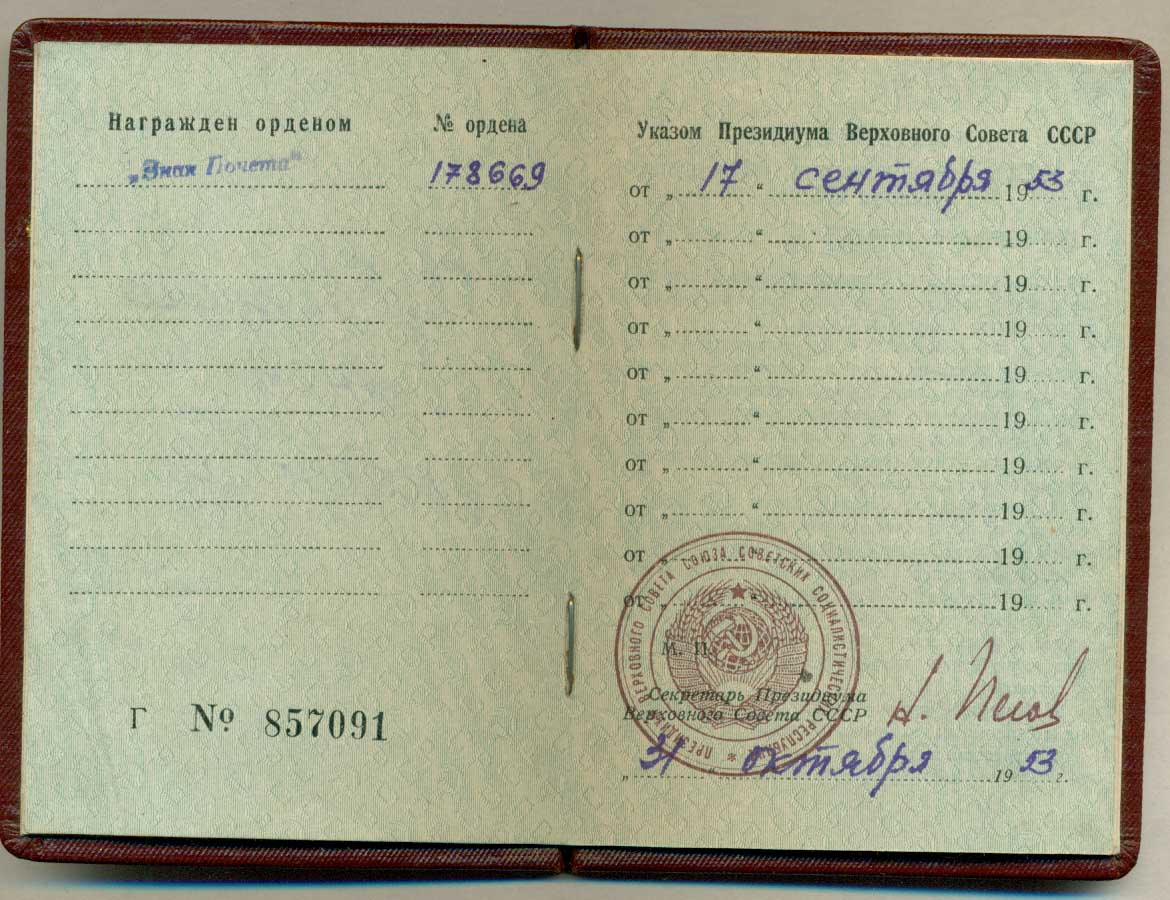 Награжден орденом № ордена
„Знак Почета“ 178669
Г № 857091
Указом Президиума Верховного Совета СССР
от „ 17 “ сентября 1953 г.
от „ “ 19 г.
от „ “ 19 г.
от „ “ 19 г.
от „ “ 19 г.
от „ “ 19 г.
от „ “ 19 г.
от „ “ 19 г.
от „ “ 19 г.
от „ “ 19 г.
ПРЕЗИДИУМ ВЕРХОВНОГО СОВЕТА СОЮЗА СОВЕТСКИХ СОЦИАЛИСТИЧЕСКИХ РЕСПУБЛИК
М. П.
Секретарь Президиума
Верховного Совета СССР Н. Пегов
„ 31 “ октября 1953 г.